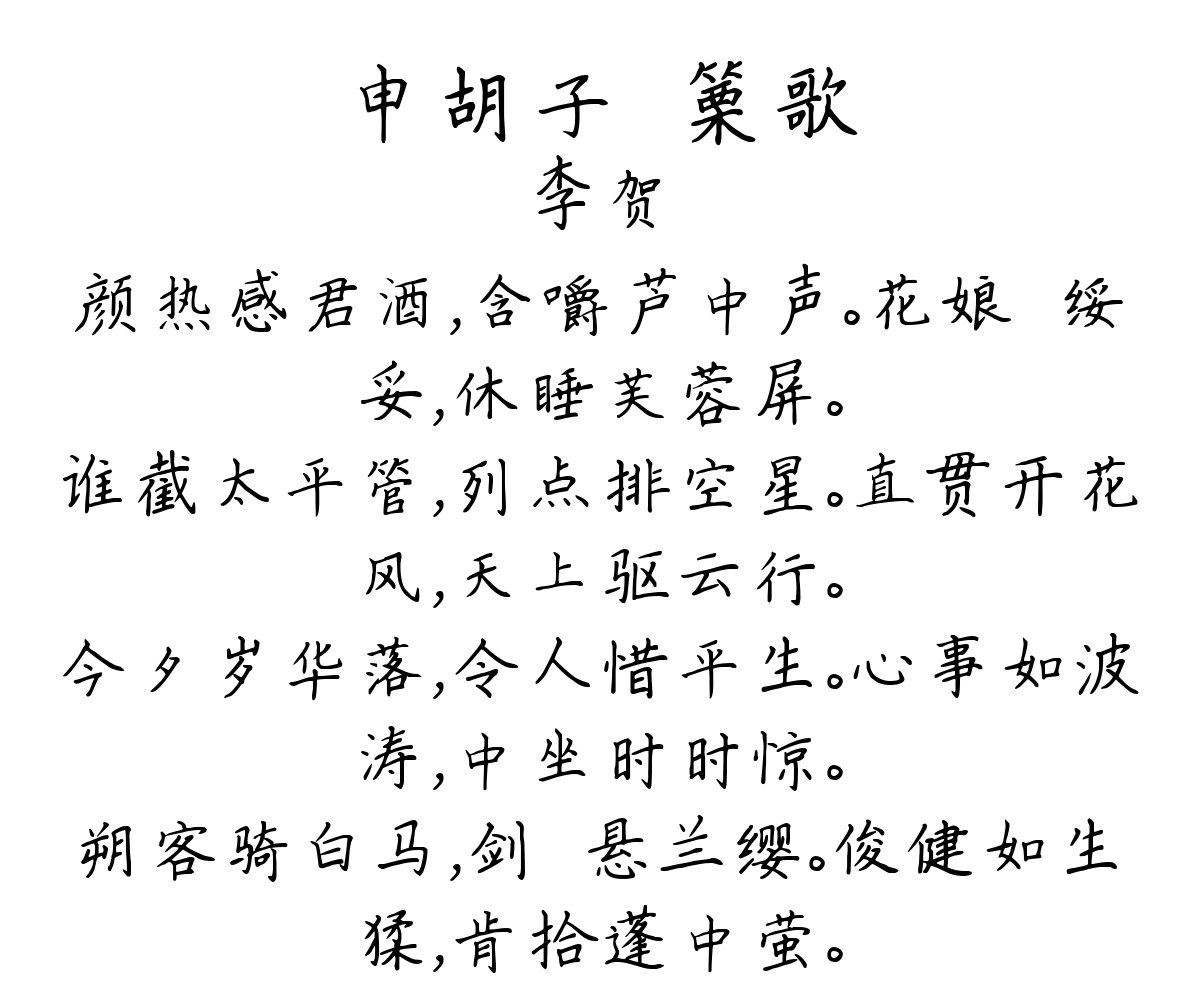 申胡子 篥歌
李贺
颜热感君酒,含嚼芦中声。花娘 绥
妥,休睡芙蓉屏。
谁截太平管,列点排空星。直贯开花
风,天上驱云行。
今夕岁华落,令人惜平生。心事如波
涛,中坐时时惊。
朔客骑白马,剑 悬兰缨。俊健如生
猱,肯拾蓬中萤。